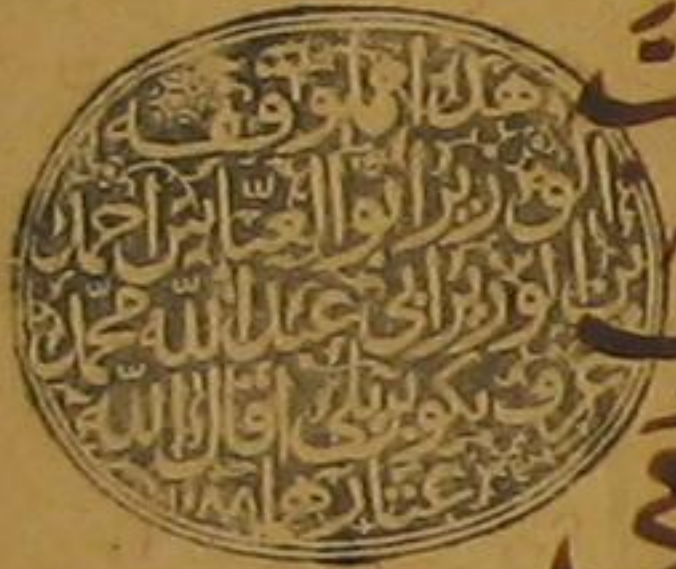 هذا مما وقفه
الوزير ابو العبّاس احمد
بن الوزير ابي عبد الله محمّد
عرف بكوبريلى اقال الله
عثارهما ١٠٨٨